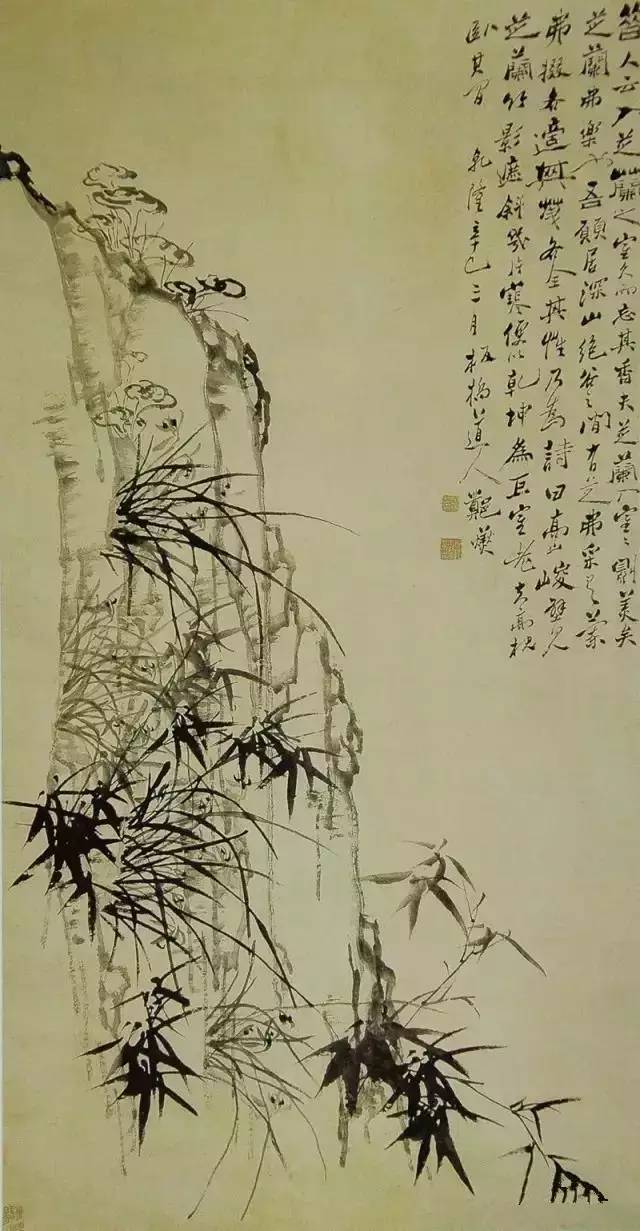 昔人云入芝蘭之室久而忘其香夫芝蘭入室〻則美矣
芝蘭弗樂也吾願居深山絕谷之間有芝弗采有蘭
弗掇各適其天各全其性乃為詩曰高山峻壁見
芝蘭竹影遮斜幾片寒便以乾坤為巨室老夫高枕
臥其間 乾隆辛巳二月板橋道人鄭燮